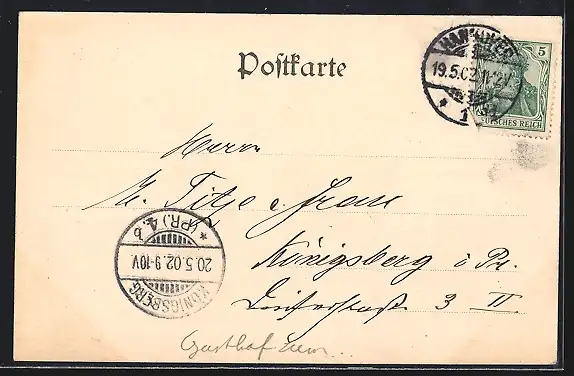 Postkarte
HANNOVER
19.5.02 11-12V
* 1
5
DEUTSCHES REICH
Herrn
Titze u. Frau
Königsberg i Pr.
3 II
* (PR.) 4. b
20.5.02.9-10V
KÖNIGSBERG
Gasthof zum